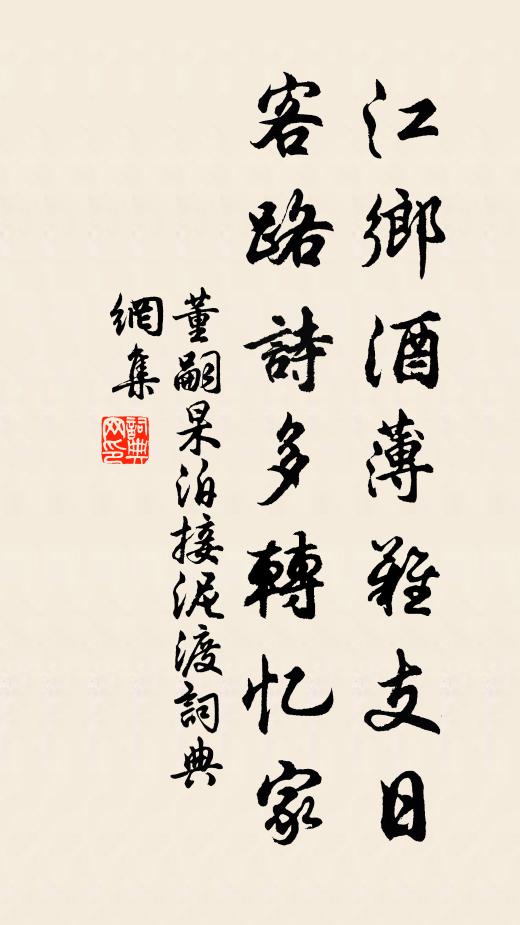 江鄉酒薄難支日
客路詩多轉忆家
董嗣杲泊接泥渡詞典
網集
詞典
网印